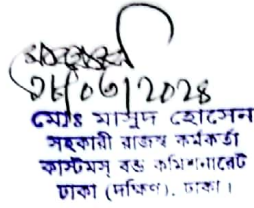 ২৮/০৩/২০২৪
মোঃ মাসুদ হোসেন
সহকারী রাজস্ব কর্মকর্তা
কাস্টমস্ বন্ড কমিশনারেট
ঢাকা (দক্ষিণ), ঢাকা।